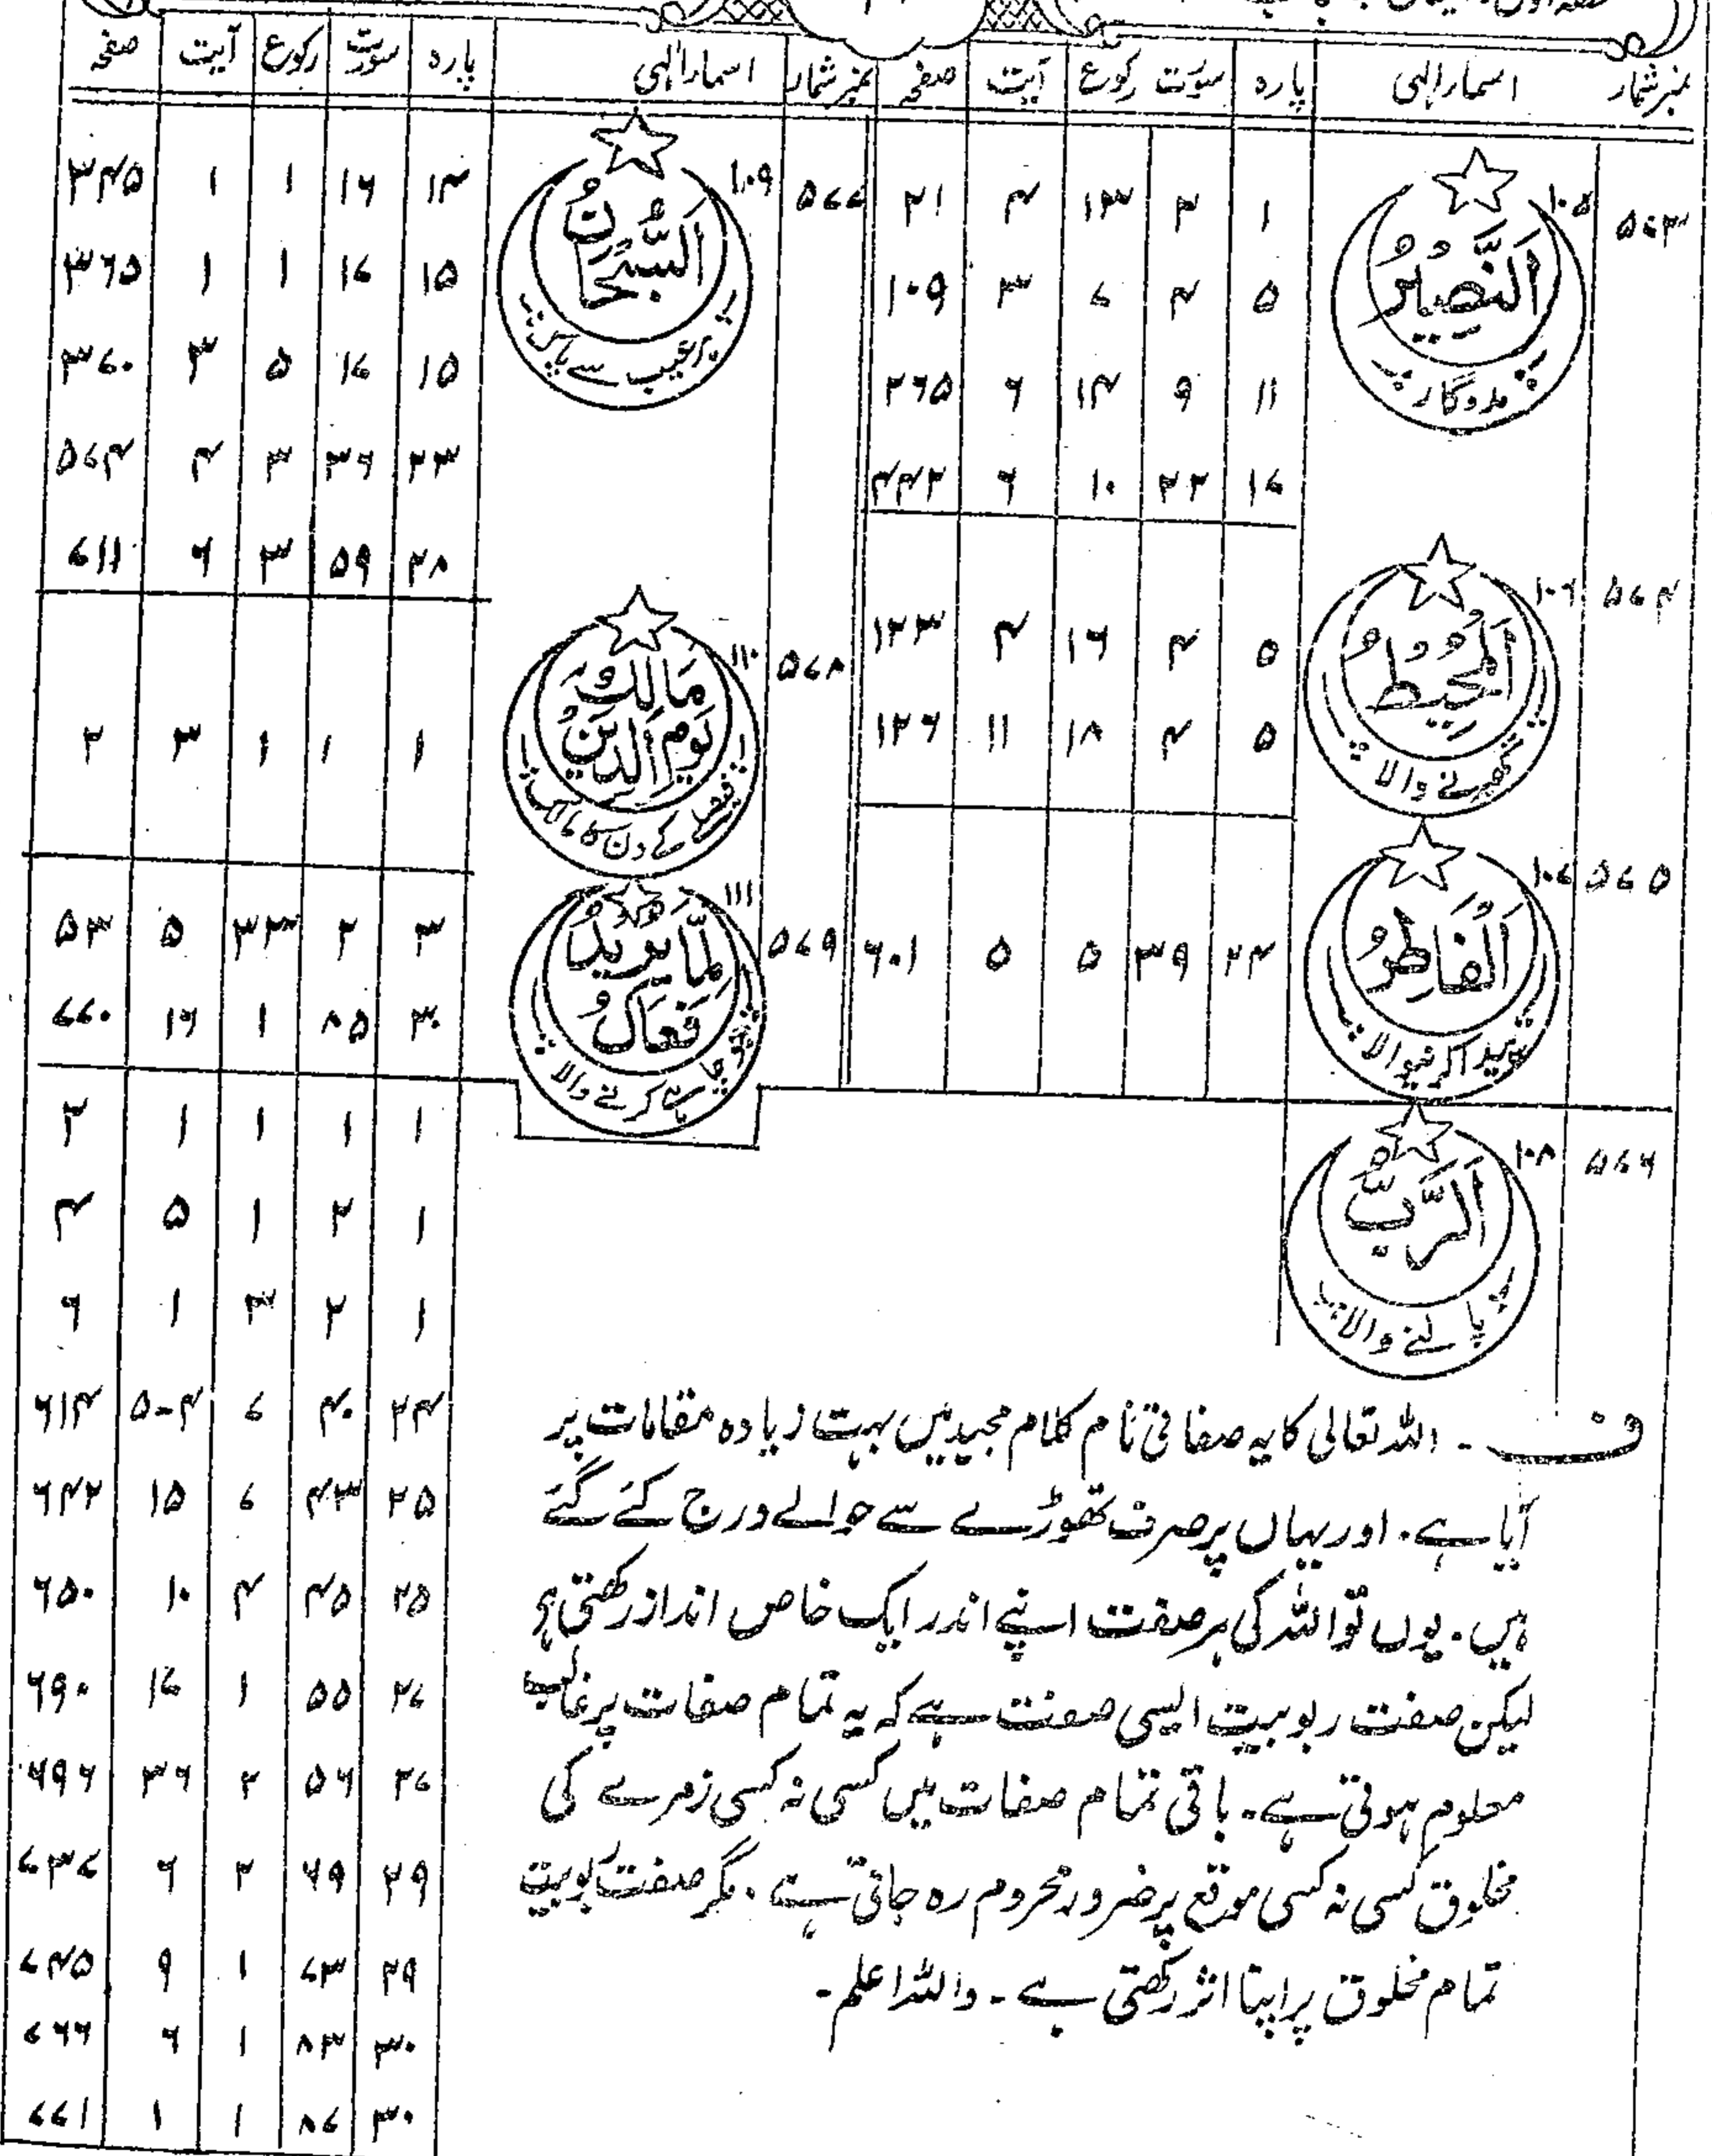 نمبر شمار اسماء الٰہی پارہ سورت رکوع آیت صفحہ نمبر شمار اسماء الٰہی پارہ سورت رکوع آیت صفحہ
۵۷۳ ۱۰۵
اَلنَّصِيْرُ
مددگار
۱ ۲ ۱۳ ۴ ۲۱
۵ ۴ ۷ ۳ ۱۰۹
۱۱ ۹ ۱۴ ۶ ۲۶۵
۱۷ ۲۲ ۱۰ ۶ ۴۴۲
۵۷۴ ۱۰۶
اَلْمُحِيْطُ
گھیرنے والا
۵ ۴ ۱۶ ۴ ۱۲۳
۵ ۴ ۱۸ ۱۱ ۱۲۶
۵۷۵ ۱۰۷
اَلْفَاطِرُ
پیدا کرنیوالا
۲۴ ۳۹ ۵ ۵ ۶۰۱
۵۷۶ ۱۰۸
اَلرَّبُّ
پالنے والا
۵۷۷ ۱۰۹
اَلسُّبْحَانُ
ہر عیب سے پاک
۱۴ ۱۶ ۱ ۱ ۳۴۵
۱۵ ۱۷ ۱ ۱ ۳۶۵
۱۵ ۱۷ ۵ ۳ ۳۷۰
۲۳ ۳۶ ۳ ۴ ۵۷۴
۲۸ ۵۹ ۳ ۶ ۷۱۱
۵۷۸ ۱۱۰
مَالِكُ
يَوْمِ الدِّيْنِ
فیصلے کے دن کا مالک
۱ ۱ ۱ ۳ ۲
۵۷۹ ۱۱۱
لِّمَا يُرِيْدُ
فَعَّالٌ
جو چاہے کرنے والا
۳ ۲ ۳۳ ۵ ۵۳
۳۰ ۸۵ ۱ ۱۶ ۷۷۰
۱ ۱ ۱ ۱ ۲
۱ ۲ ۱ ۵ ۴
۱ ۲ ۳ ۱ ۶
۲۴ ۴۰ ۷ ۴-۵ ۶۱۴
۲۵ ۴۳ ۷ ۱۵ ۶۴۲
۲۵ ۴۵ ۴ ۱۰ ۶۵۰
۲۷ ۵۵ ۱ ۱۷ ۶۹۰
۲۷ ۵۶ ۲ ۳۶ ۶۹۶
۲۹ ۶۹ ۲ ۶ ۷۳۷
۲۹ ۷۳ ۱ ۹ ۷۴۵
۳۰ ۸۳ ۱ ۶ ۷۶۶
۳۰ ۸۷ ۱ ۱ ۷۷۱
ف ۔ اللہ تعالیٰ کا یہ صفاتی نام کلام مجید میں بہت زیادہ مقامات پر
آیا ہے۔ اور یہاں پر صرف تھوڑے سے حوالے درج کئے گئے
ہیں۔ یوں تو اللہ کی ہر صفت اپنے اندر ایک خاص انداز رکھتی ہے
لیکن صفت ربوبیت ایسی صفت ہے کہ یہ تمام صفات پر غالب
معلوم ہوتی ہے۔ باقی تمام صفات میں کسی نہ کسی زمرے کی
مخلوق کسی نہ کسی موقع پر ضرور محروم رہ جاتی ہے ۔ مگر صفت ربوبیت
تمام مخلوق پر اپنا اثر رکھتی ہے ۔ واللہ اعلم ۔